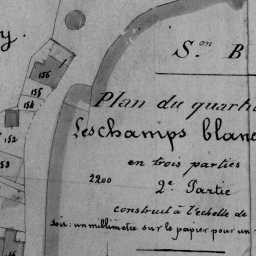 y.
S.on B
156
155
154
152
53
Plan du quarti
Leschamps blanc
en trois parties
2200
2e Partie
construit à l'échelle de
soit : un millimètre sur le papier pour un
16